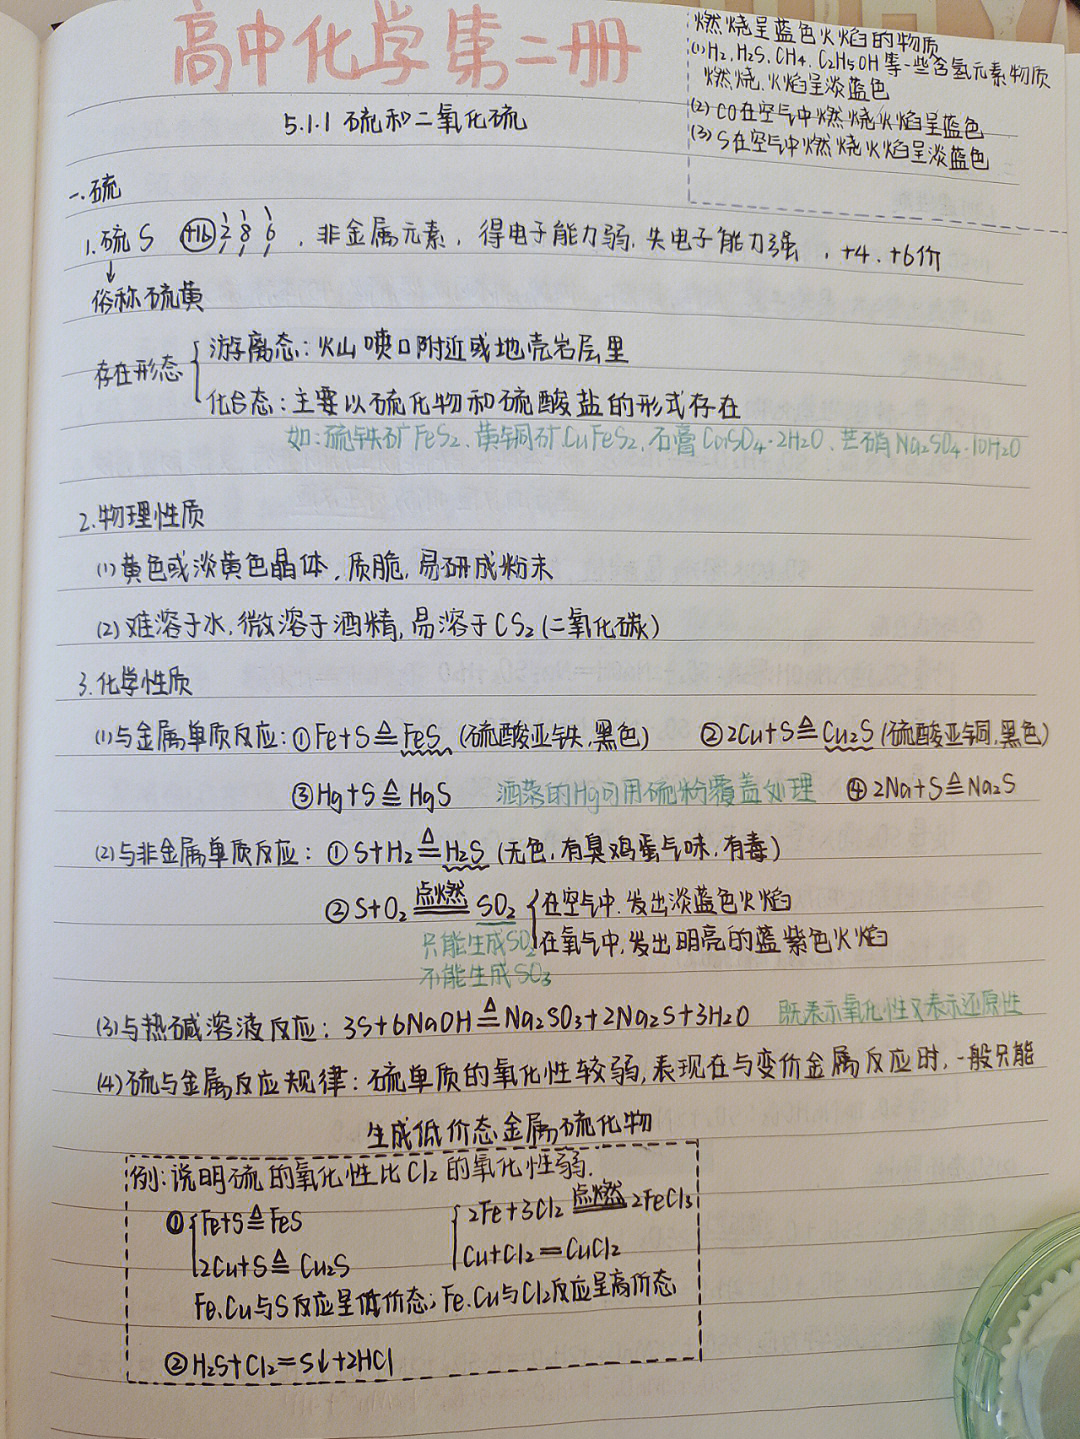 高中化学第二册
燃烧呈蓝色火焰的物质
(1)H₂、H₂S、CH₄、C₂H₅OH等一些含氢元素物质
燃烧,火焰呈淡蓝色
(2)CO在空气中燃烧火焰呈蓝色
(3)S在空气中燃烧火焰呈淡蓝色
5.1.1 硫和二氧化硫
一.硫
1.硫S (+16) 2 8 6 ,非金属元素,得电子能力弱,失电子能力强,+4、+6价
↓
俗称硫黄
存在形态
游离态:火山喷口附近或地壳岩层里
化合态:主要以硫化物和硫酸盐的形式存在
如:硫铁矿FeS₂、黄铜矿CuFeS₂,石膏CaSO₄·2H₂O、芒硝Na₂SO₄·10H₂O
2.物理性质
(1)黄色或淡黄色晶体,质脆,易研成粉末
(2)难溶于水,微溶于酒精,易溶于CS₂(二氧化碳)
3.化学性质
(1)与金属单质反应:①Fe+S≜FeS(硫酸亚铁,黑色) ②2Cu+S≜Cu₂S(硫酸亚铜,黑色)
③Hg+S≜HgS 洒落的Hg可用硫粉覆盖处理 ④2Na+S≜Na₂S
(2)与非金属单质反应:①S+H₂≜H₂S(无色,有臭鸡蛋气味,有毒)
②S+O₂ 点燃 SO₂ 在空气中,发出淡蓝色火焰
只能生成SO₂ 在氧气中,发出明亮的蓝紫色火焰
不能生成SO₃
(3)与热碱溶液反应:3S+6NaOH≜Na₂SO₃+2Na₂S+3H₂O 既表示氧化性又表示还原性
(4)硫与金属反应规律:硫单质的氧化性较弱,表现在与变价金属反应时,一般只能
生成低价态金属硫化物
例:说明硫的氧化性比Cl₂的氧化性弱.
① Fe+S≜FeS 2Fe+3Cl₂ 点燃 2FeCl₃
2Cu+S≜Cu₂S Cu+Cl₂=CuCl₂
Fe.Cu与S反应呈低价态;Fe.Cu与Cl₂反应呈高价态
②H₂S+Cl₂=S↓+2HCl